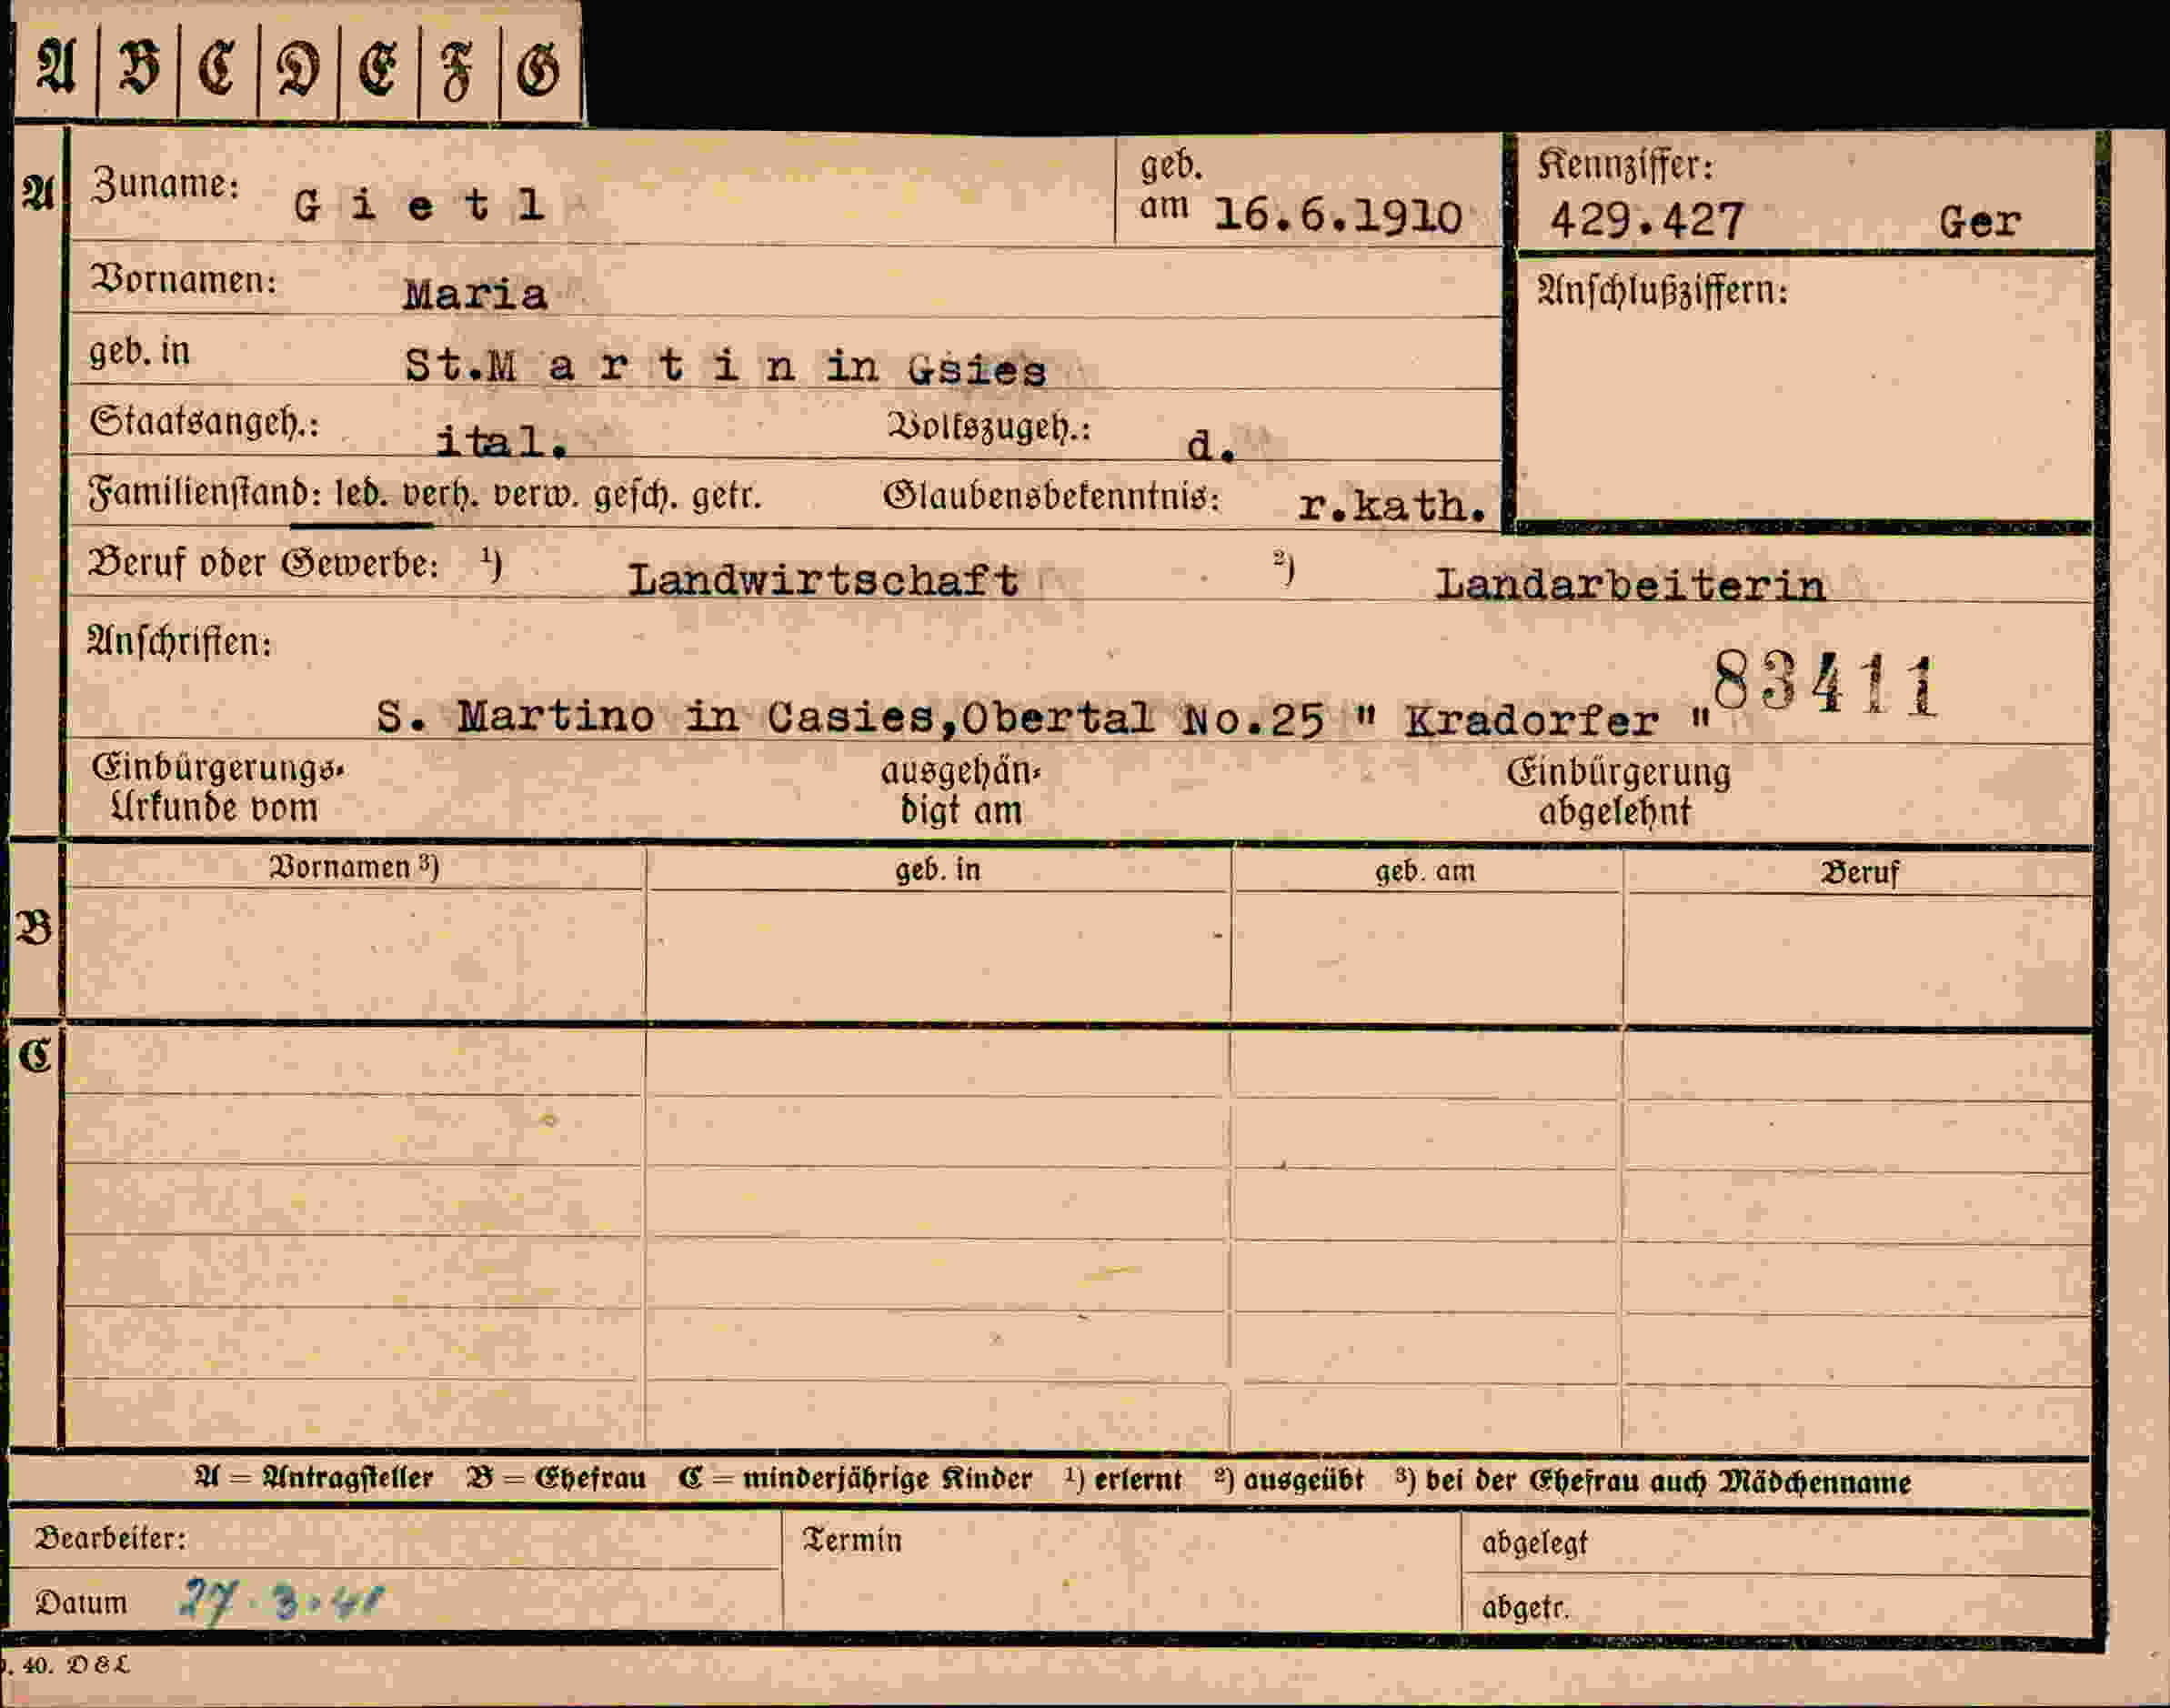 A B C D E F G
A Zuname: Gietl geb. am 16.6.1910 Kennziffer: 429.427 Ger
Vornamen: Maria Anschlußziffern:
geb. in St.Martin in Gsies
Staatsangeh.: ital. Volkszugeh.: d.
Familienstand: led. verh. verw. gesch. getr. Glaubensbekenntnis: r.kath.
Beruf oder Gewerbe: ¹) Landwirtschaft ²) Landarbeiterin
Anschriften:
83411
S. Martino in Casies,Obertal No.25 " Kradorfer "
Einbürgerungs- ausgehän- Einbürgerung
Urkunde vom digt am abgelehnt
Vornamen ³) geb. in geb. am Beruf
B
C
A = Antragsteller B = Ehefrau C = minderjährige Kinder ¹) erlernt ²) ausgeübt ³) bei der Ehefrau auch Mädchenname
Bearbeiter: Termin abgelegt
Datum 27.3.41 abgetr.
. 40. D&L